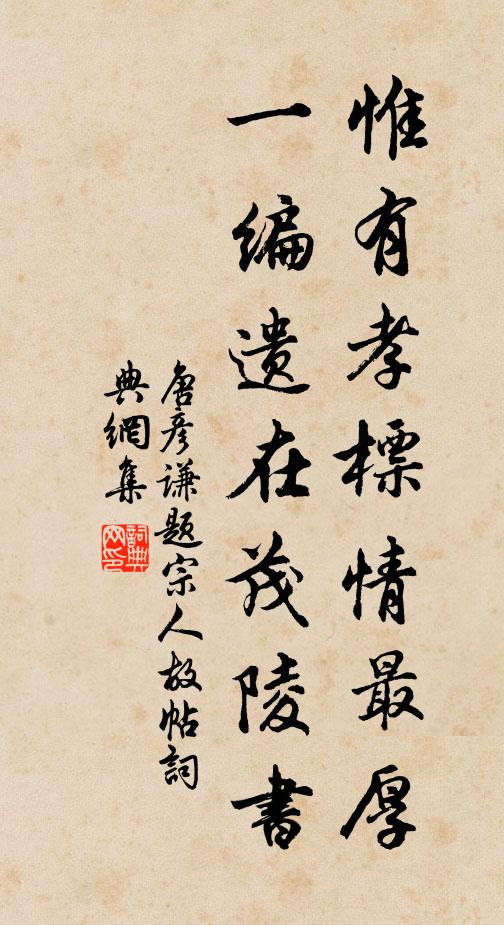 惟有孝標情最厚
一编遗在茂陵書
唐彦谦题宗人故帖詞
典網集
詞典網印